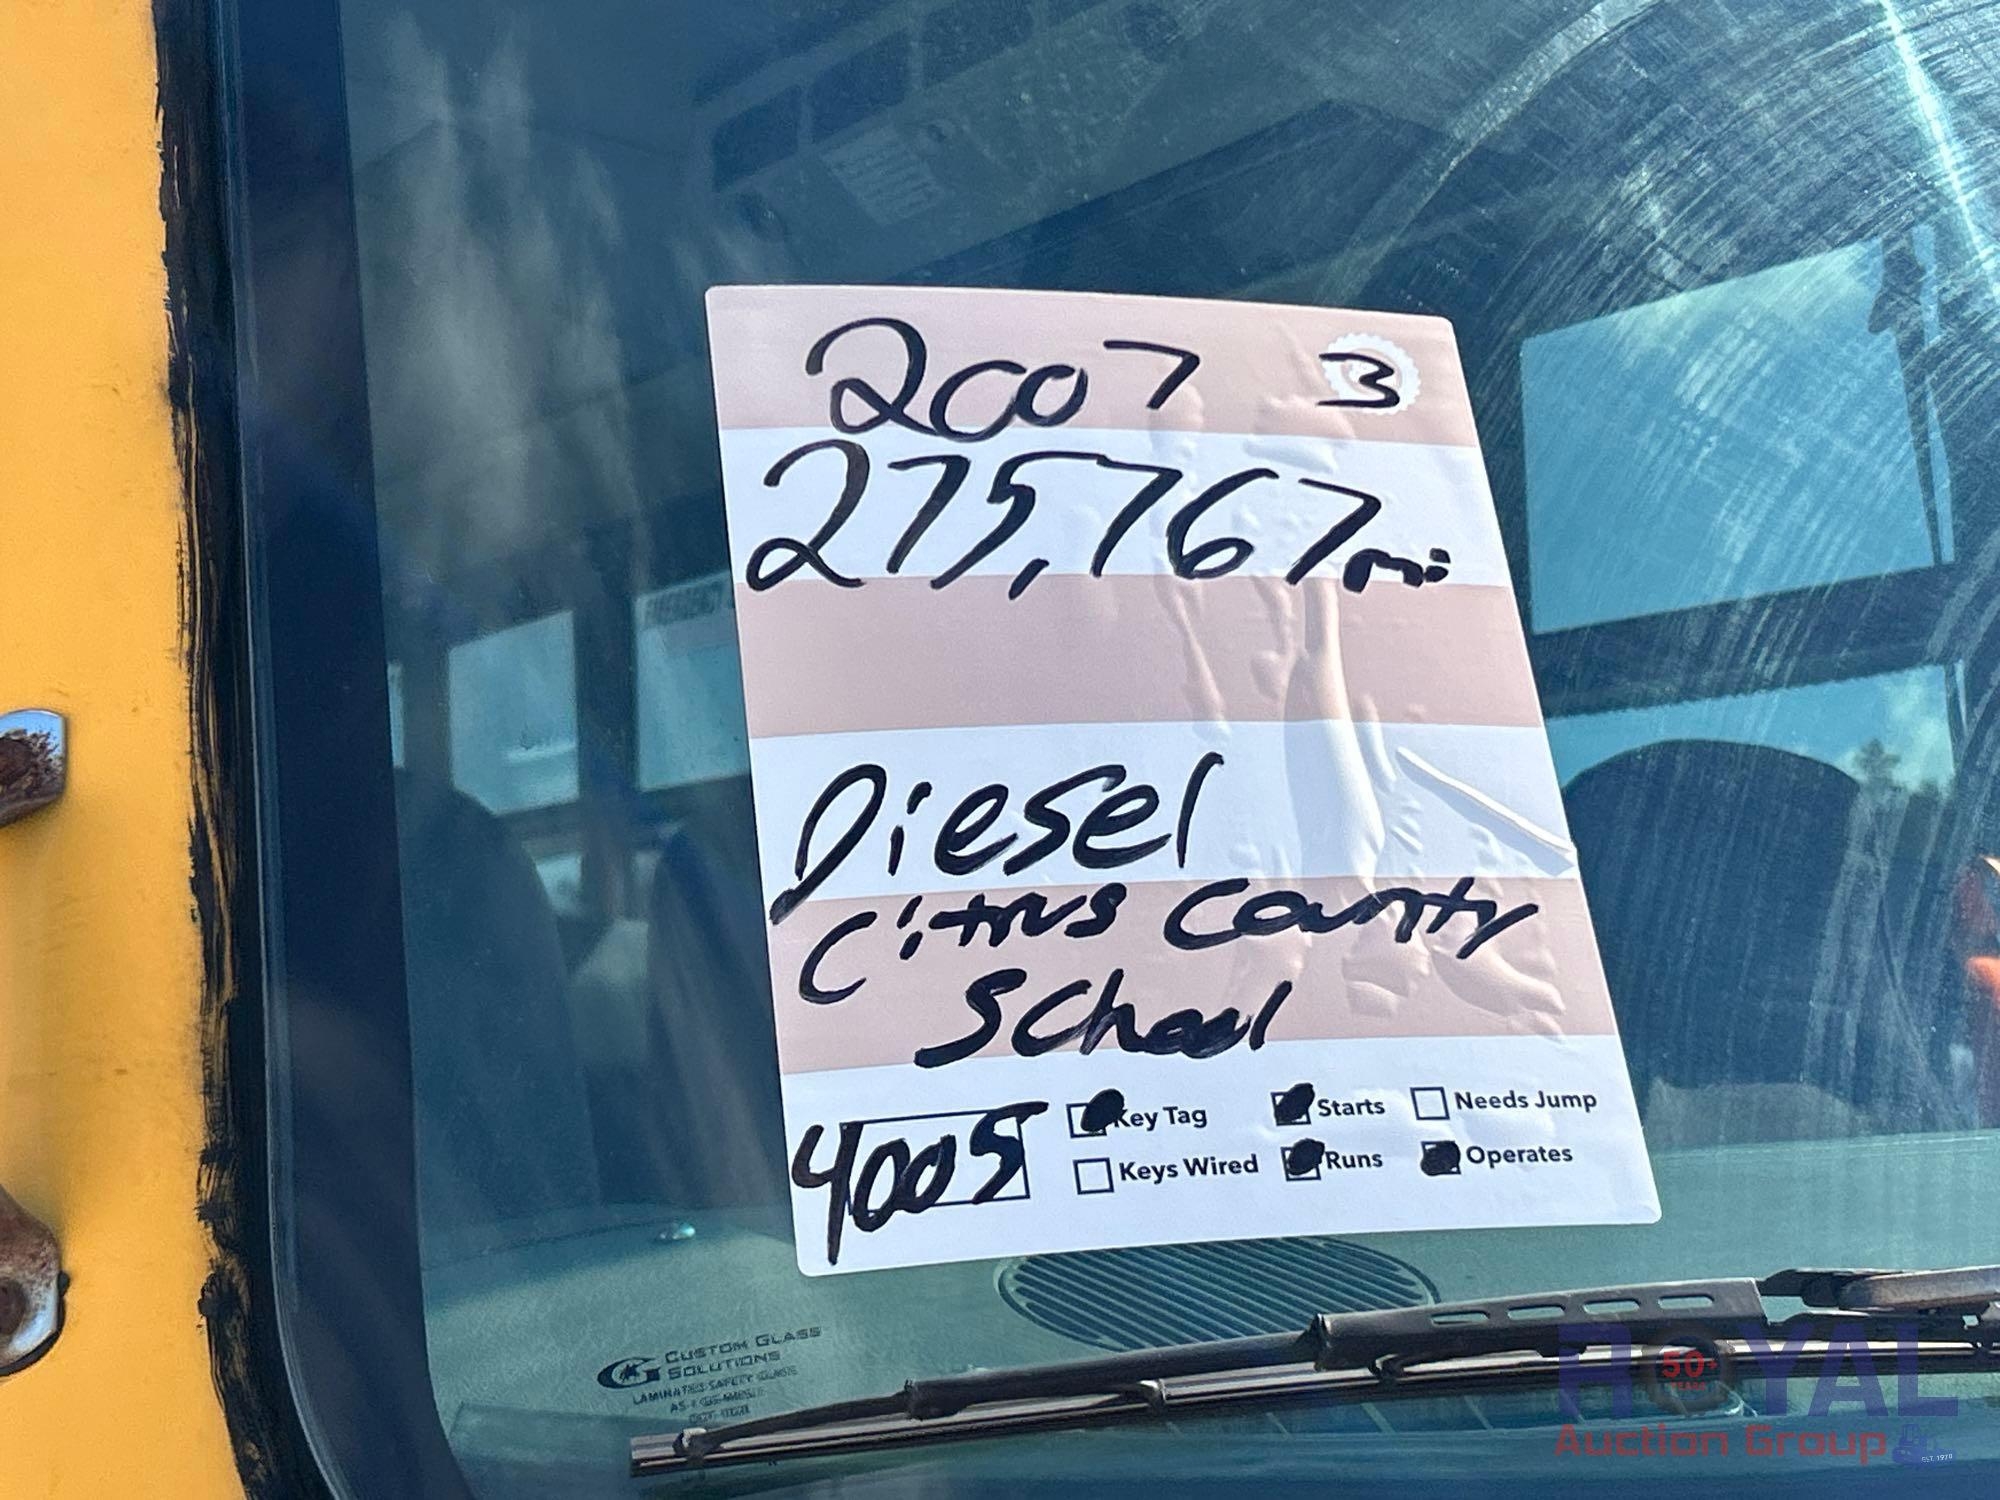 2007 3
275,767 mi
EMERGENCY
Diesel
Citrus County
School
4005
Key Tag Starts Needs Jump
Keys Wired Runs Operates
CUSTOM GLASS
SOLUTIONS
LAMINATED SAFETY GLASS
ROYAL
50+
YEARS
Auction Group
EST. 1970